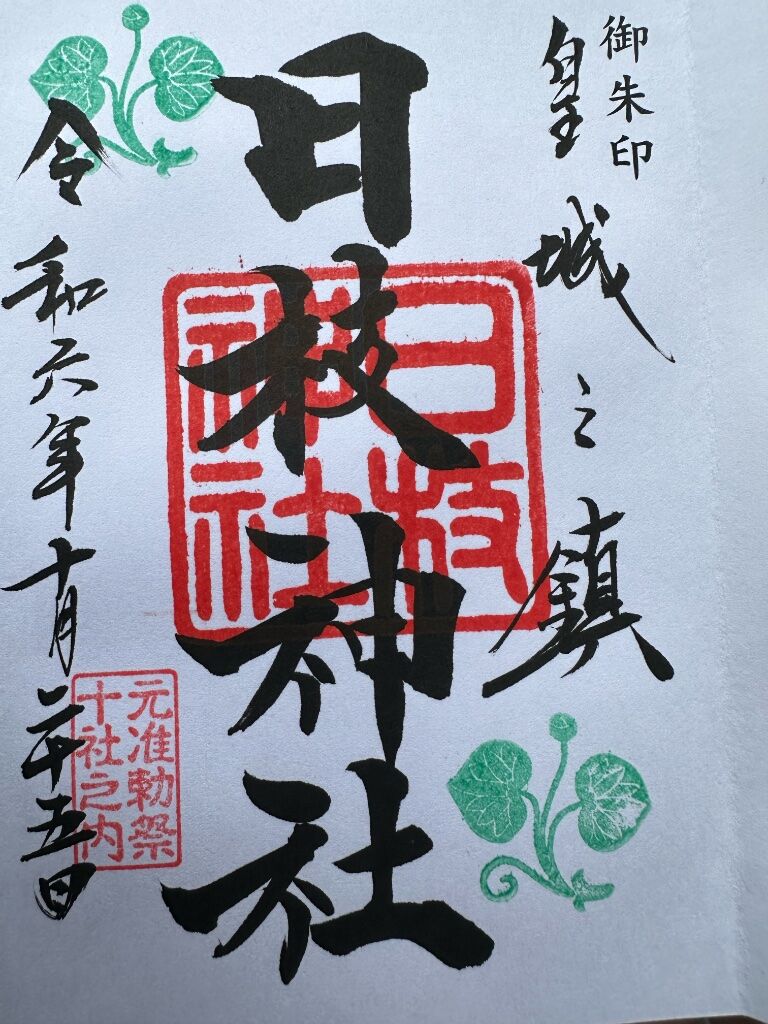 御朱印
皇城之鎮
日枝神社
日枝
神社
令和六年十月二十五日
元准勅祭
十社之内